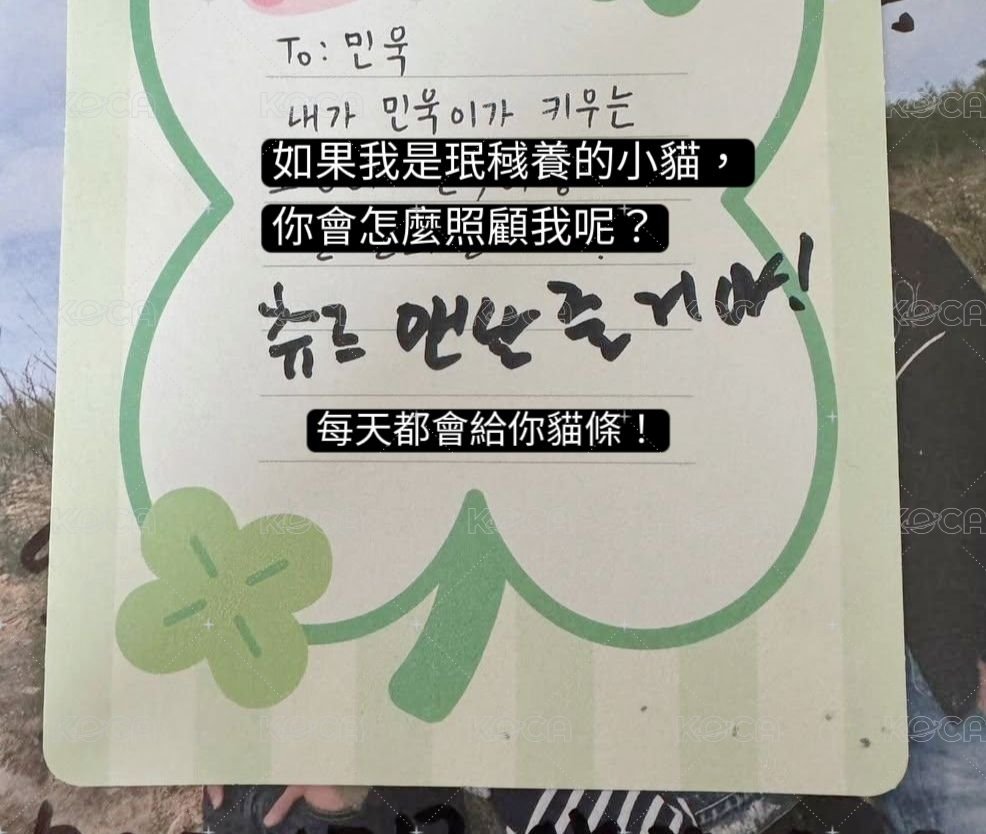 To: 민욱
내가 민욱이가 키우는
如果我是珉稶養的小貓，
你會怎麼照顧我呢？
츄르 맨날 줄거야!
每天都會給你貓條！
KOCA